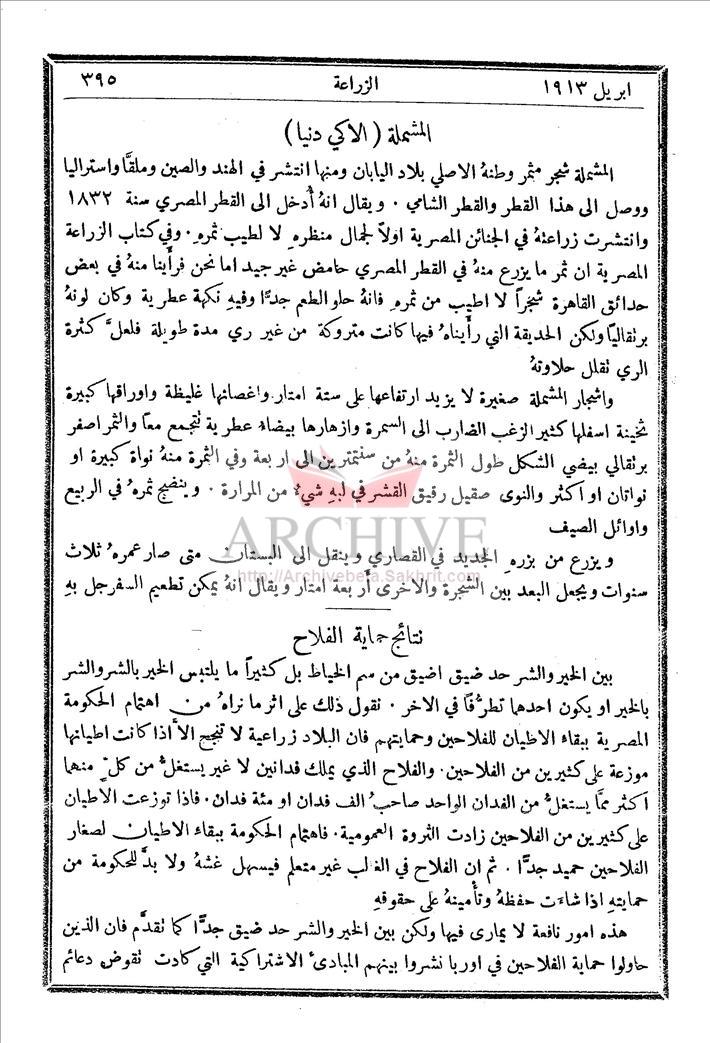 ابريل ١٩١٣
الزراعة
٣٩٥
المشملة (الاكي دنيا)
المشملة شجر مثمر وطنهُ الاصلي بلاد اليابان ومنها انتشر في الهند والصين وملقَّا واستراليا
ووصل الى هذا القطر والقطر الشامي . ويقال انهُ أُدخل الى القطر المصري سنة ١٨٣٢
وانتشرت زراعتهُ في الجنائن المصرية اولاً لجمال منظرهِ لا لطيب ثمرهِ . وفي كتاب الزراعة
المصرية ان ثمر ما يزرع منهُ في القطر المصري حامض غير جيد اما نحن فرأينا منهُ في بعض
حدائق القاهرة شجراً لا اطيب من ثمرهِ فانهُ حلو الطعم جدًّا وفيهِ نكهة عطرية وكان لونهُ
برتقالياً ولكن الحديقة التي رأيناهُ فيها كانت متروكة من غير ري مدة طويلة فلعلَّ كثرة
الري تقلل حلاوتهُ
واشجار المشملة صغيرة لا يزيد ارتفاعها على ستة امتار واغصانها غليظة واوراقها كبيرة
ثخينة اسفلها كثير الزغب الضارب الى السمرة وازهارها بيضاء عطرية تتجمع معاً والثمر اصفر
برتقالي بيضي الشكل طول الثمرة منهُ من سنتمترين الى اربعة وفي الثمرة منهُ نواة كبيرة او
نواتان او اكثر والنوى صقيل رقيق القشر في لبهِ شيءٌ من المرارة . وينضج ثمرهُ في الربيع
واوائل الصيف
ويزرع من بزرهِ الجديد في القصاري وينقل الى البستان متى صار عمرهُ ثلاث
سنوات ويجعل البعد بين الشجرة والاخرى أربعة امتار ويقال انهُ يمكن تطعيم السفرجل بهِ
ARCHIVE
http://Archivebeta.Sakhrit.com
نتائج حماية الفلاح
بين الخير والشر حد ضيق اضيق من سم الخياط بل كثيراً ما يلتبس الخير بالشر والشر
بالخير او يكون احدهما تطرُّفاً في الآخر . نقول ذلك على اثر ما نراهُ من اهتمام الحكومة
المصرية ببقاء الاطيان للفلاحين وحمايتهم فان البلاد زراعية لا تنجح الاَّ اذا كانت اطيانها
موزعة على كثيرين من الفلاحين . والفلاح الذي يملك فدانين لا غير يستغلُّ من كلّ منهما
اكثر ممَّا يستغلُّ من الفدان الواحد صاحبُ الف فدان او مئة فدان . فاذا توزعت الأطيان
على كثيرين من الفلاحين زادت الثروة العمومية . فاهتمام الحكومة ببقاء الاطيان لصغار
الفلاحين حميد جدًّا . ثم ان الفلاح في الغالب غير متعلم فيسهل غشهُ ولا بدَّ للحكومة من
حمايتهِ اذا شاءت حفظهُ وتأمينهُ على حقوقهِ
هذه امور نافعة لا يمارى فيها ولكن بين الخير والشر حد ضيق جدًّا كما تقدَّم فان الذين
حاولوا حماية الفلاحين في اوربا نشروا بينهم المبادئ الاشتراكية التي كادت تقوض دعائم